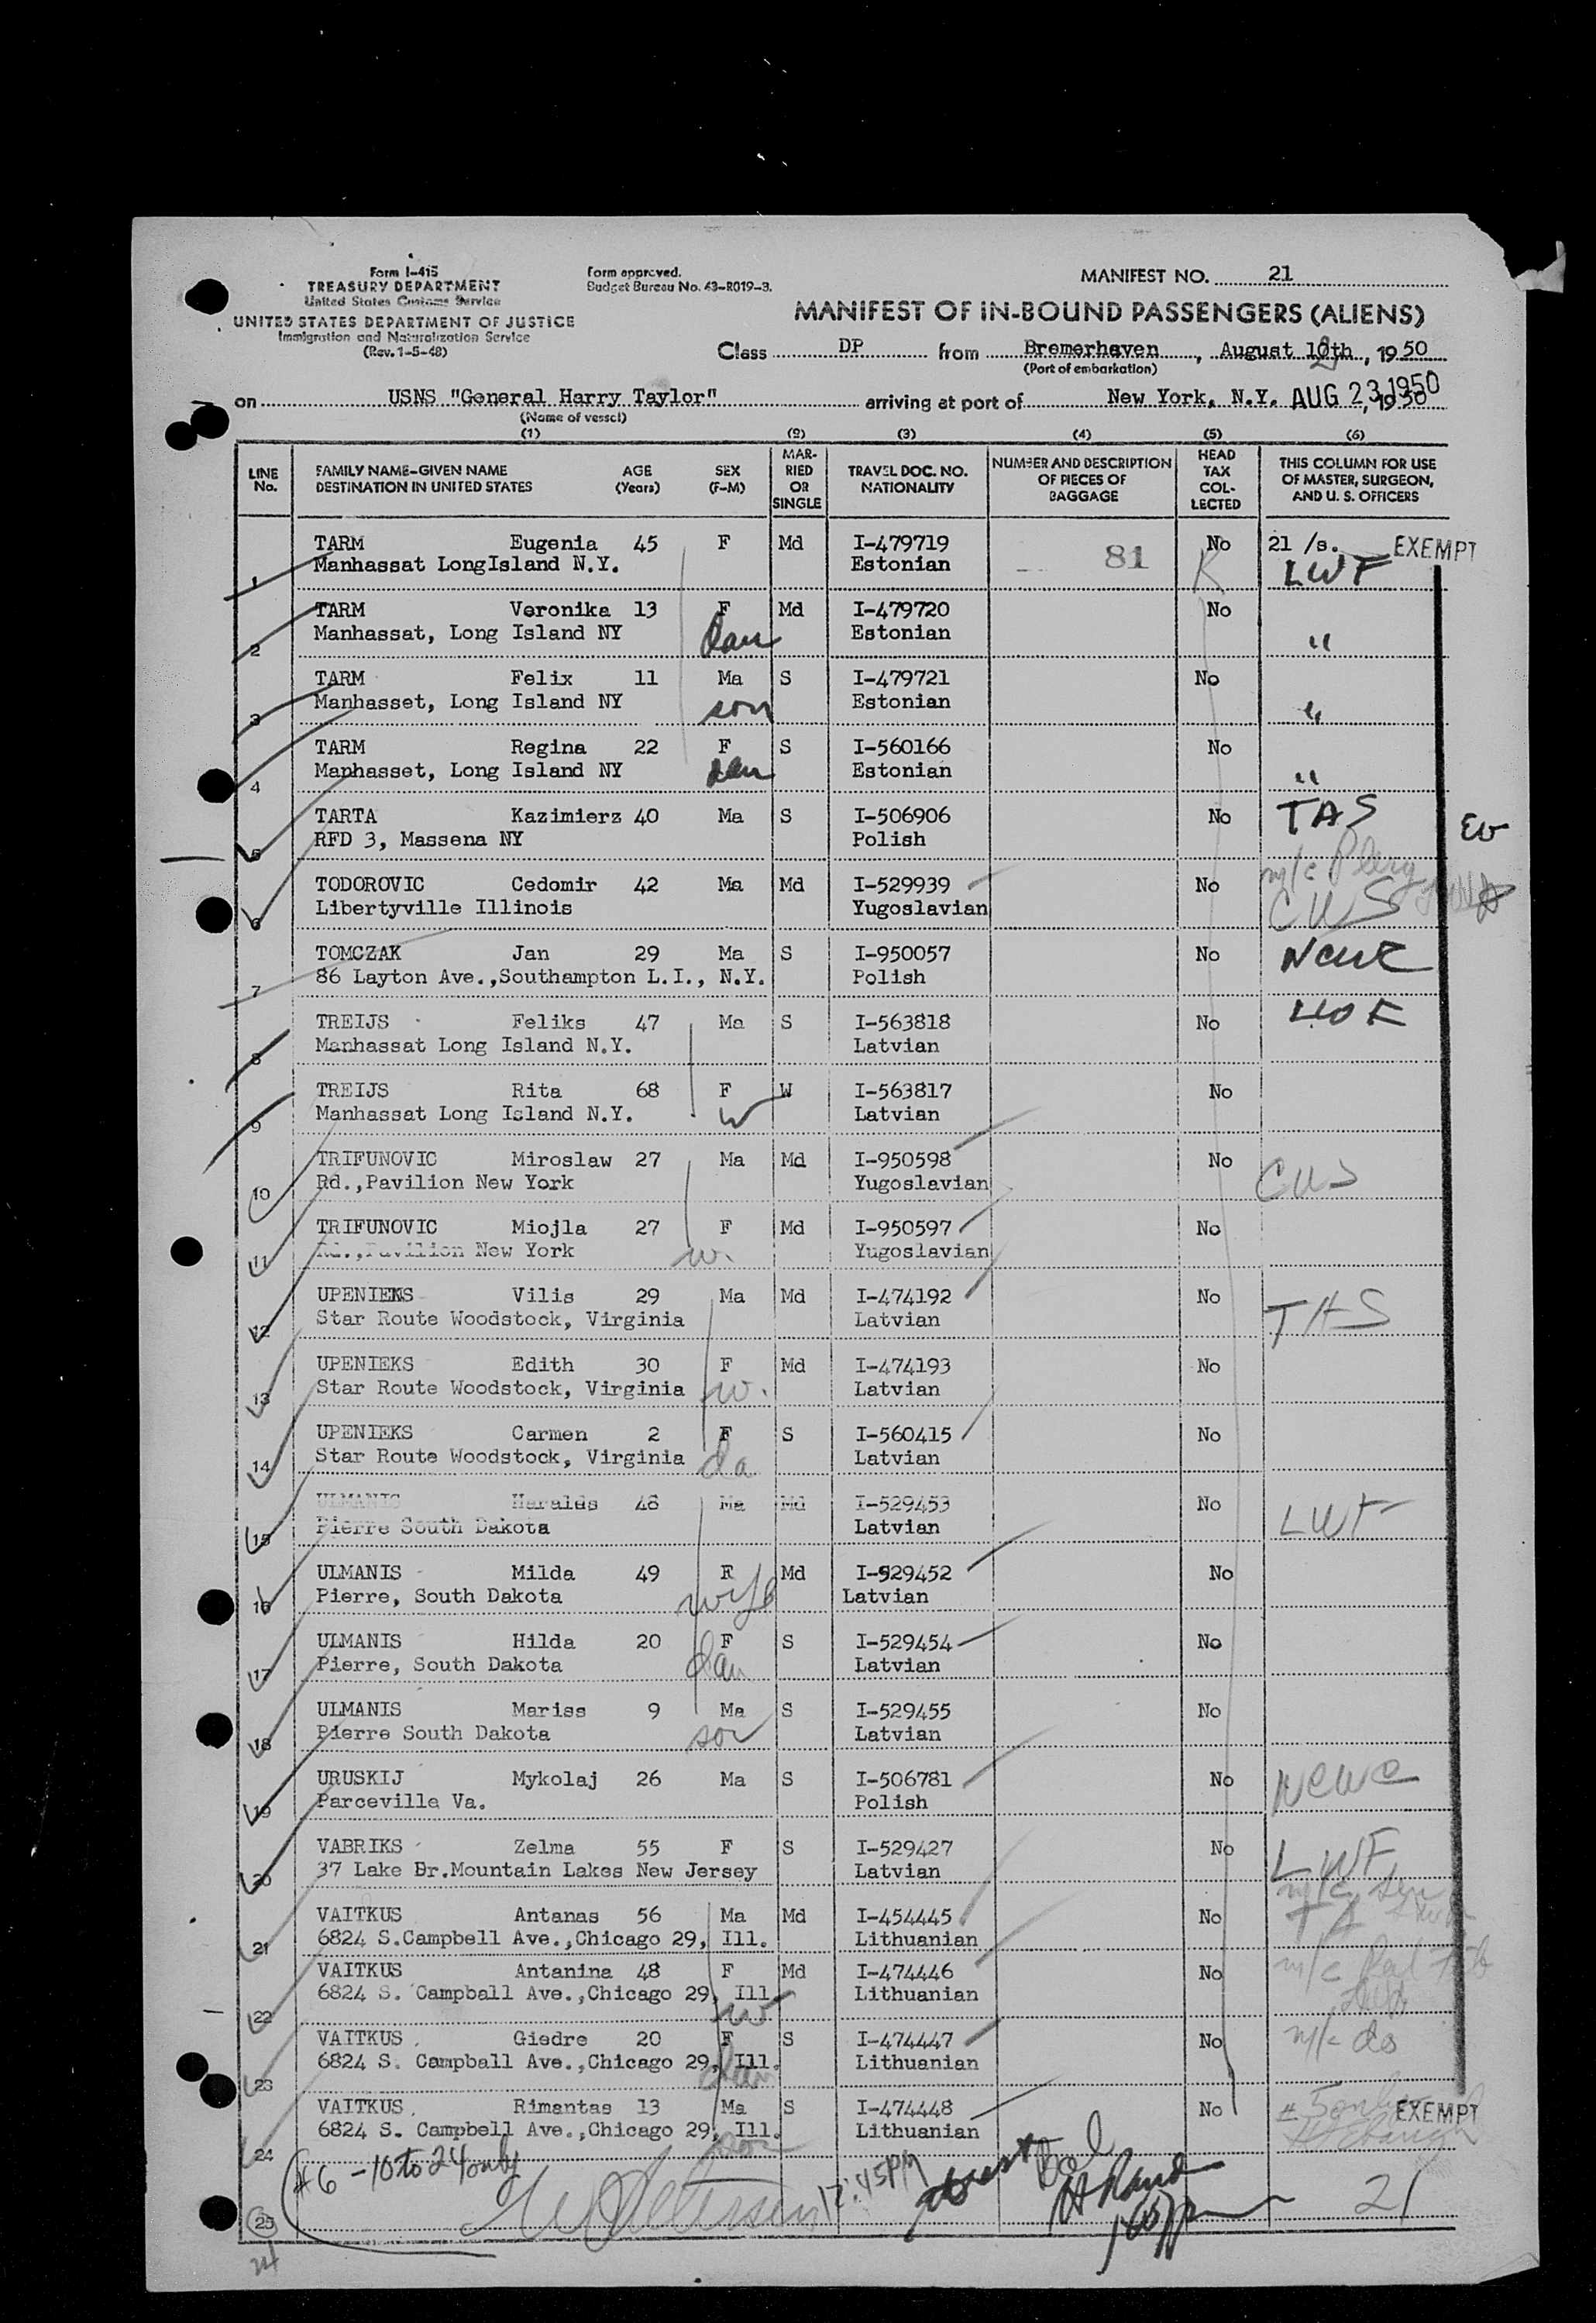 Form I-415
TREASURY DEPARTMENT
United States Customs Service
UNITED STATES DEPARTMENT OF JUSTICE
Immigration and Naturalization Service
(Rev. 1-5-48)
Form approved.
Budget Bureau No. 43-R019-3.
MANIFEST NO. 21
MANIFEST OF IN-BOUND PASSENGERS (ALIENS)
Class DP from Bremerhaven, August 10th, 1950
(Port of embarkation)
on USNS "General Harry Taylor" arriving at port of New York, N.Y. AUG 23 1950
(Name of vessel)
(1) (2) (3) (4) (5) (6)
LINE No. FAMILY NAME-GIVEN NAME DESTINATION IN UNITED STATES AGE (Years) SEX (F-M) MARRIED OR SINGLE TRAVEL DOC. NO. NATIONALITY NUMBER AND DESCRIPTION OF PIECES OF BAGGAGE HEAD TAX COLLECTED THIS COLUMN FOR USE OF MASTER, SURGEON, AND U. S. OFFICERS
TARM Eugenia 45 F Md I-479719 81 No 21 /s. EXEMPT
1 Manhassat LongIsland N.Y. Estonian K LWF
TARM Veronika 13 F Md I-479720 No
2 Manhassat, Long Island NY dau Estonian "
TARM Felix 11 Ma S I-479721 No
3 Manhasset, Long Island NY son Estonian "
TARM Regina 22 F S I-560166 No
4 Manhasset, Long Island NY dau Estonian "
TARTA Kazimierz 40 Ma S I-506906 No TAS
5 RFD 3, Massena NY Polish
TODOROVIC Cedomir 42 Ma Md I-529939 No m/c
6 Libertyville Illinois Yugoslavian CWS
TOMCZAK Jan 29 Ma S I-950057 No NCWC
7 86 Layton Ave.,Southampton L.I., N.Y. Polish
TREIJS Feliks 47 Ma S I-563818 No
8 Manhassat Long Island N.Y. Latvian
TREIJS Rita 68 F W I-563817 No
9 Manhassat Long Island N.Y. w Latvian
TRIFUNOVIC Miroslaw 27 Ma Md I-950598 No CWS
10 Rd.,Pavilion New York Yugoslavian
TRIFUNOVIC Miojla 27 F Md I-950597 No
11 Rd.,Pavilion New York w. Yugoslavian
UPENIEKS Vilis 29 Ma Md I-474192 No TAS
12 Star Route Woodstock, Virginia Latvian
UPENIEKS Edith 30 F Md I-474193 No
13 Star Route Woodstock, Virginia w. Latvian
UPENIEKS Carmen 2 F S I-560415 No
14 Star Route Woodstock, Virginia da Latvian
ULMANIS Haralds 48 Ma Md I-529453 No LWF
15 Pierre South Dakota Latvian
ULMANIS Milda 49 F Md I-529452 No
16 Pierre, South Dakota wife Latvian
ULMANIS Hilda 20 F S I-529454 No
17 Pierre, South Dakota dau Latvian
ULMANIS Mariss 9 Ma S I-529455 No
18 Pierre South Dakota son Latvian
URUSKIJ Mykolaj 26 Ma S I-506781 No NCWC
19 Parceville Va. Polish
VABRIKS Zelma 55 F S I-529427 No LWF
20 37 Lake Dr.Mountain Lakes New Jersey Latvian m/c
VAITKUS Antanas 56 Ma Md I-454445 No
21 6824 S.Campbell Ave.,Chicago 29, Ill. Lithuanian
VAITKUS Antanina 48 F Md I-474446 No m/c
22 6824 S. Campball Ave.,Chicago 29, Ill w Lithuanian
VAITKUS Giedre 20 F S I-474447 No m/c do
23 6824 S. Campball Ave.,Chicago 29, Ill. dau Lithuanian
VAITKUS Rimantas 13 Ma S I-474448 No EXEMPT
24 6824 S. Campbell Ave.,Chicago 29, Ill. son Lithuanian
#6 - 10 to 24 only 12:45PM
25 21
24